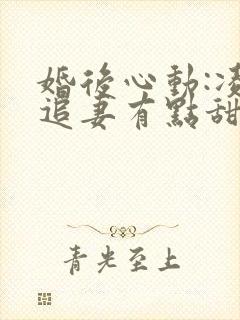 婚後心動:凌
追妻有點甜
青光至上